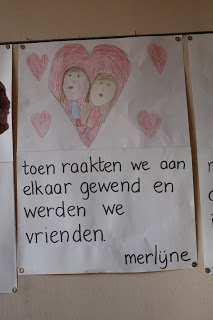 toen raakten we aan
elkaar gewend en
werden we
vrienden.
merlijne